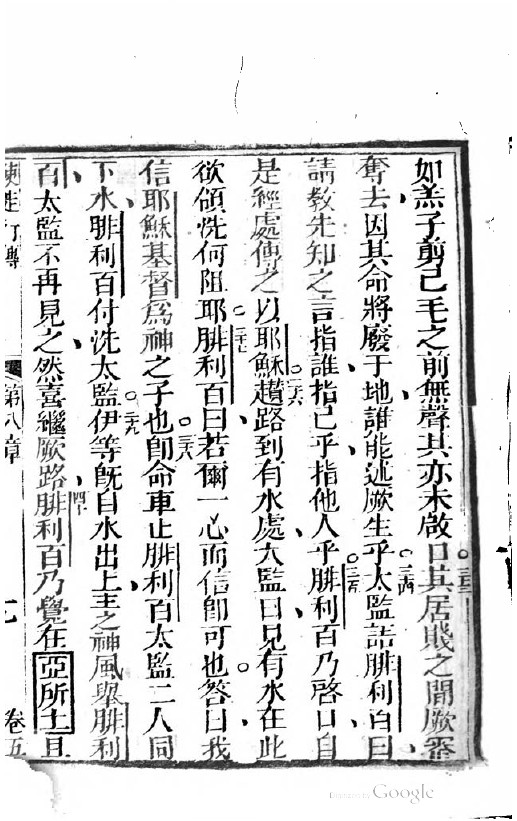 如羔子剪己毛之前無聲其亦未啟口三三其居賤之間厥審
奪去因其命將廢于地誰能述厥生乎三四太監詰腓利百曰
請教先知之言指誰指己乎指他人乎三五腓利百乃啓口自
是經處傳之以耶穌三六趲路到有水處太監曰見有水在此
欲領洗何阻耶三七腓利百曰若爾一心而信卽可也答曰我
信耶穌基督為神之子也三八卽命車止腓利百太監二人同
下水腓利百付洗太監三九伊等旣自水出上主之神風舉腓利
百太監不再見之然喜繼厥路四十腓利百乃覺在亞所土且
使徒行傳 第八章 卷五
Google